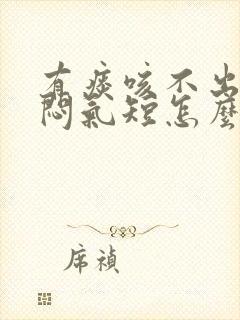 有痰咳不出
悶氣短怎麼
席禎